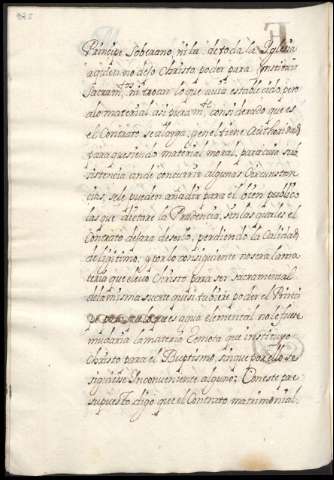 Principe Soberano, ni la de toda la Yglesia
a quien no dejo Christo poder para Ynstituir
Sacram.tos ni trocar lo que avia establecido, pero
a lo material asi precisam.te considerado que es
el Contrato se alarga, y en el tiene Authoridad
para que siendo material moral, para cuia sub
sistencia an de concurrir algunas Circunstan
cias, se le pueden añadir para el bien publico
las que dictare la Prudencia, sin las quales el
Contrato dejara de serlo, perdiendo la Calidad
de lexitimo, y por lo consiguiente no sera la ma
teria que elevo Christo para ser sacramental
de la misma suerte que si tubiere poder el Princi
pe es agua elemental no le fuese
mudaria la materia remota que instituyo
Christo para el Baptismo sin que por ello se
siguiese Ynconveniente alguno; Con este pre
supuesto digo que el Contrato matrimonial